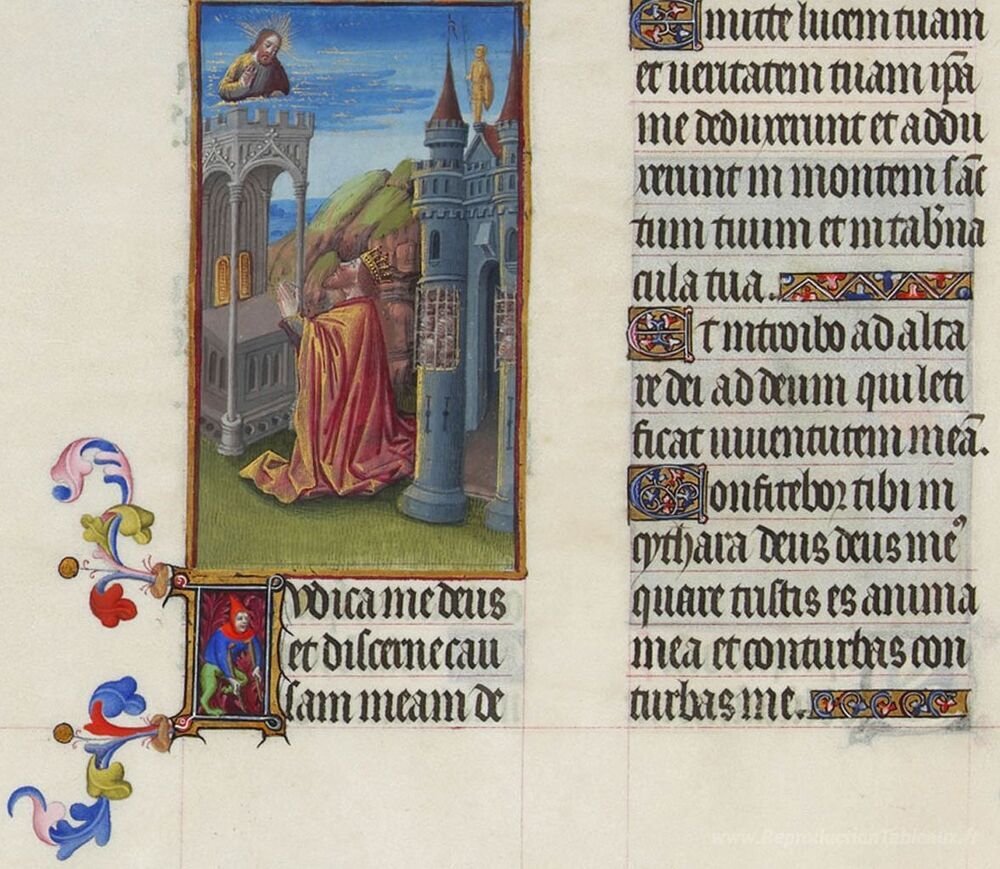 Iudica me deus
et discerne cau
sam meam de
Emitte lucem tuam
et ueritatem tuam ip̄a
me deduxerunt et addu
xerunt in montem sāc
tum tuum et in tab̄na
cula tua.
Et introibo ad alta
re dei ad deum qui leti
ficat iuuentutem meā.
Confitebor tibi in
cythara deus deus me᾽
quare tristis es anima
mea et conturbas con
turbas me.
www.ReproductionTableaux.fr